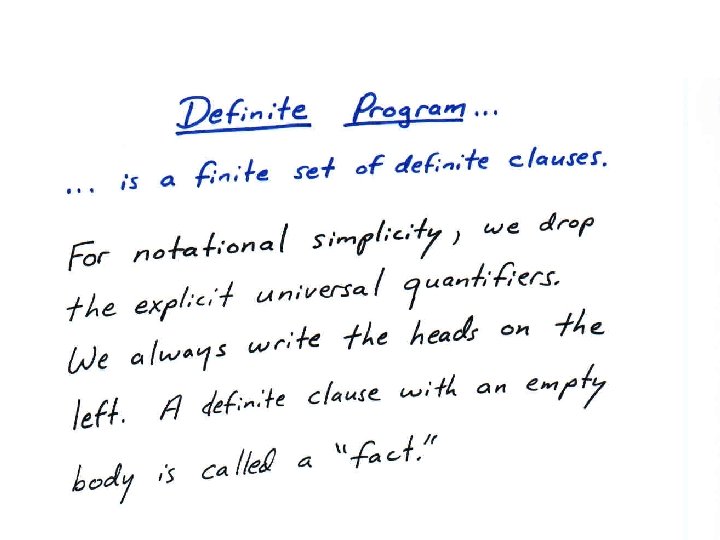 Definite Program...
... is a finite set of definite clauses.
For notational simplicity, we drop
the explicit universal quantifiers.
We always write the heads on the
left. A definite clause with an empty
body is called a "fact."